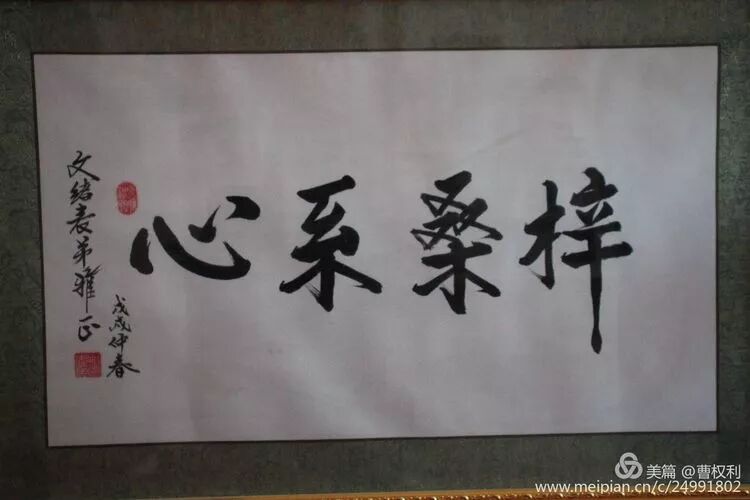 梓桑系心
戊戌仲春
文结表弟雅正
美篇 @曹权利
www.meipian.cn/c/24991802